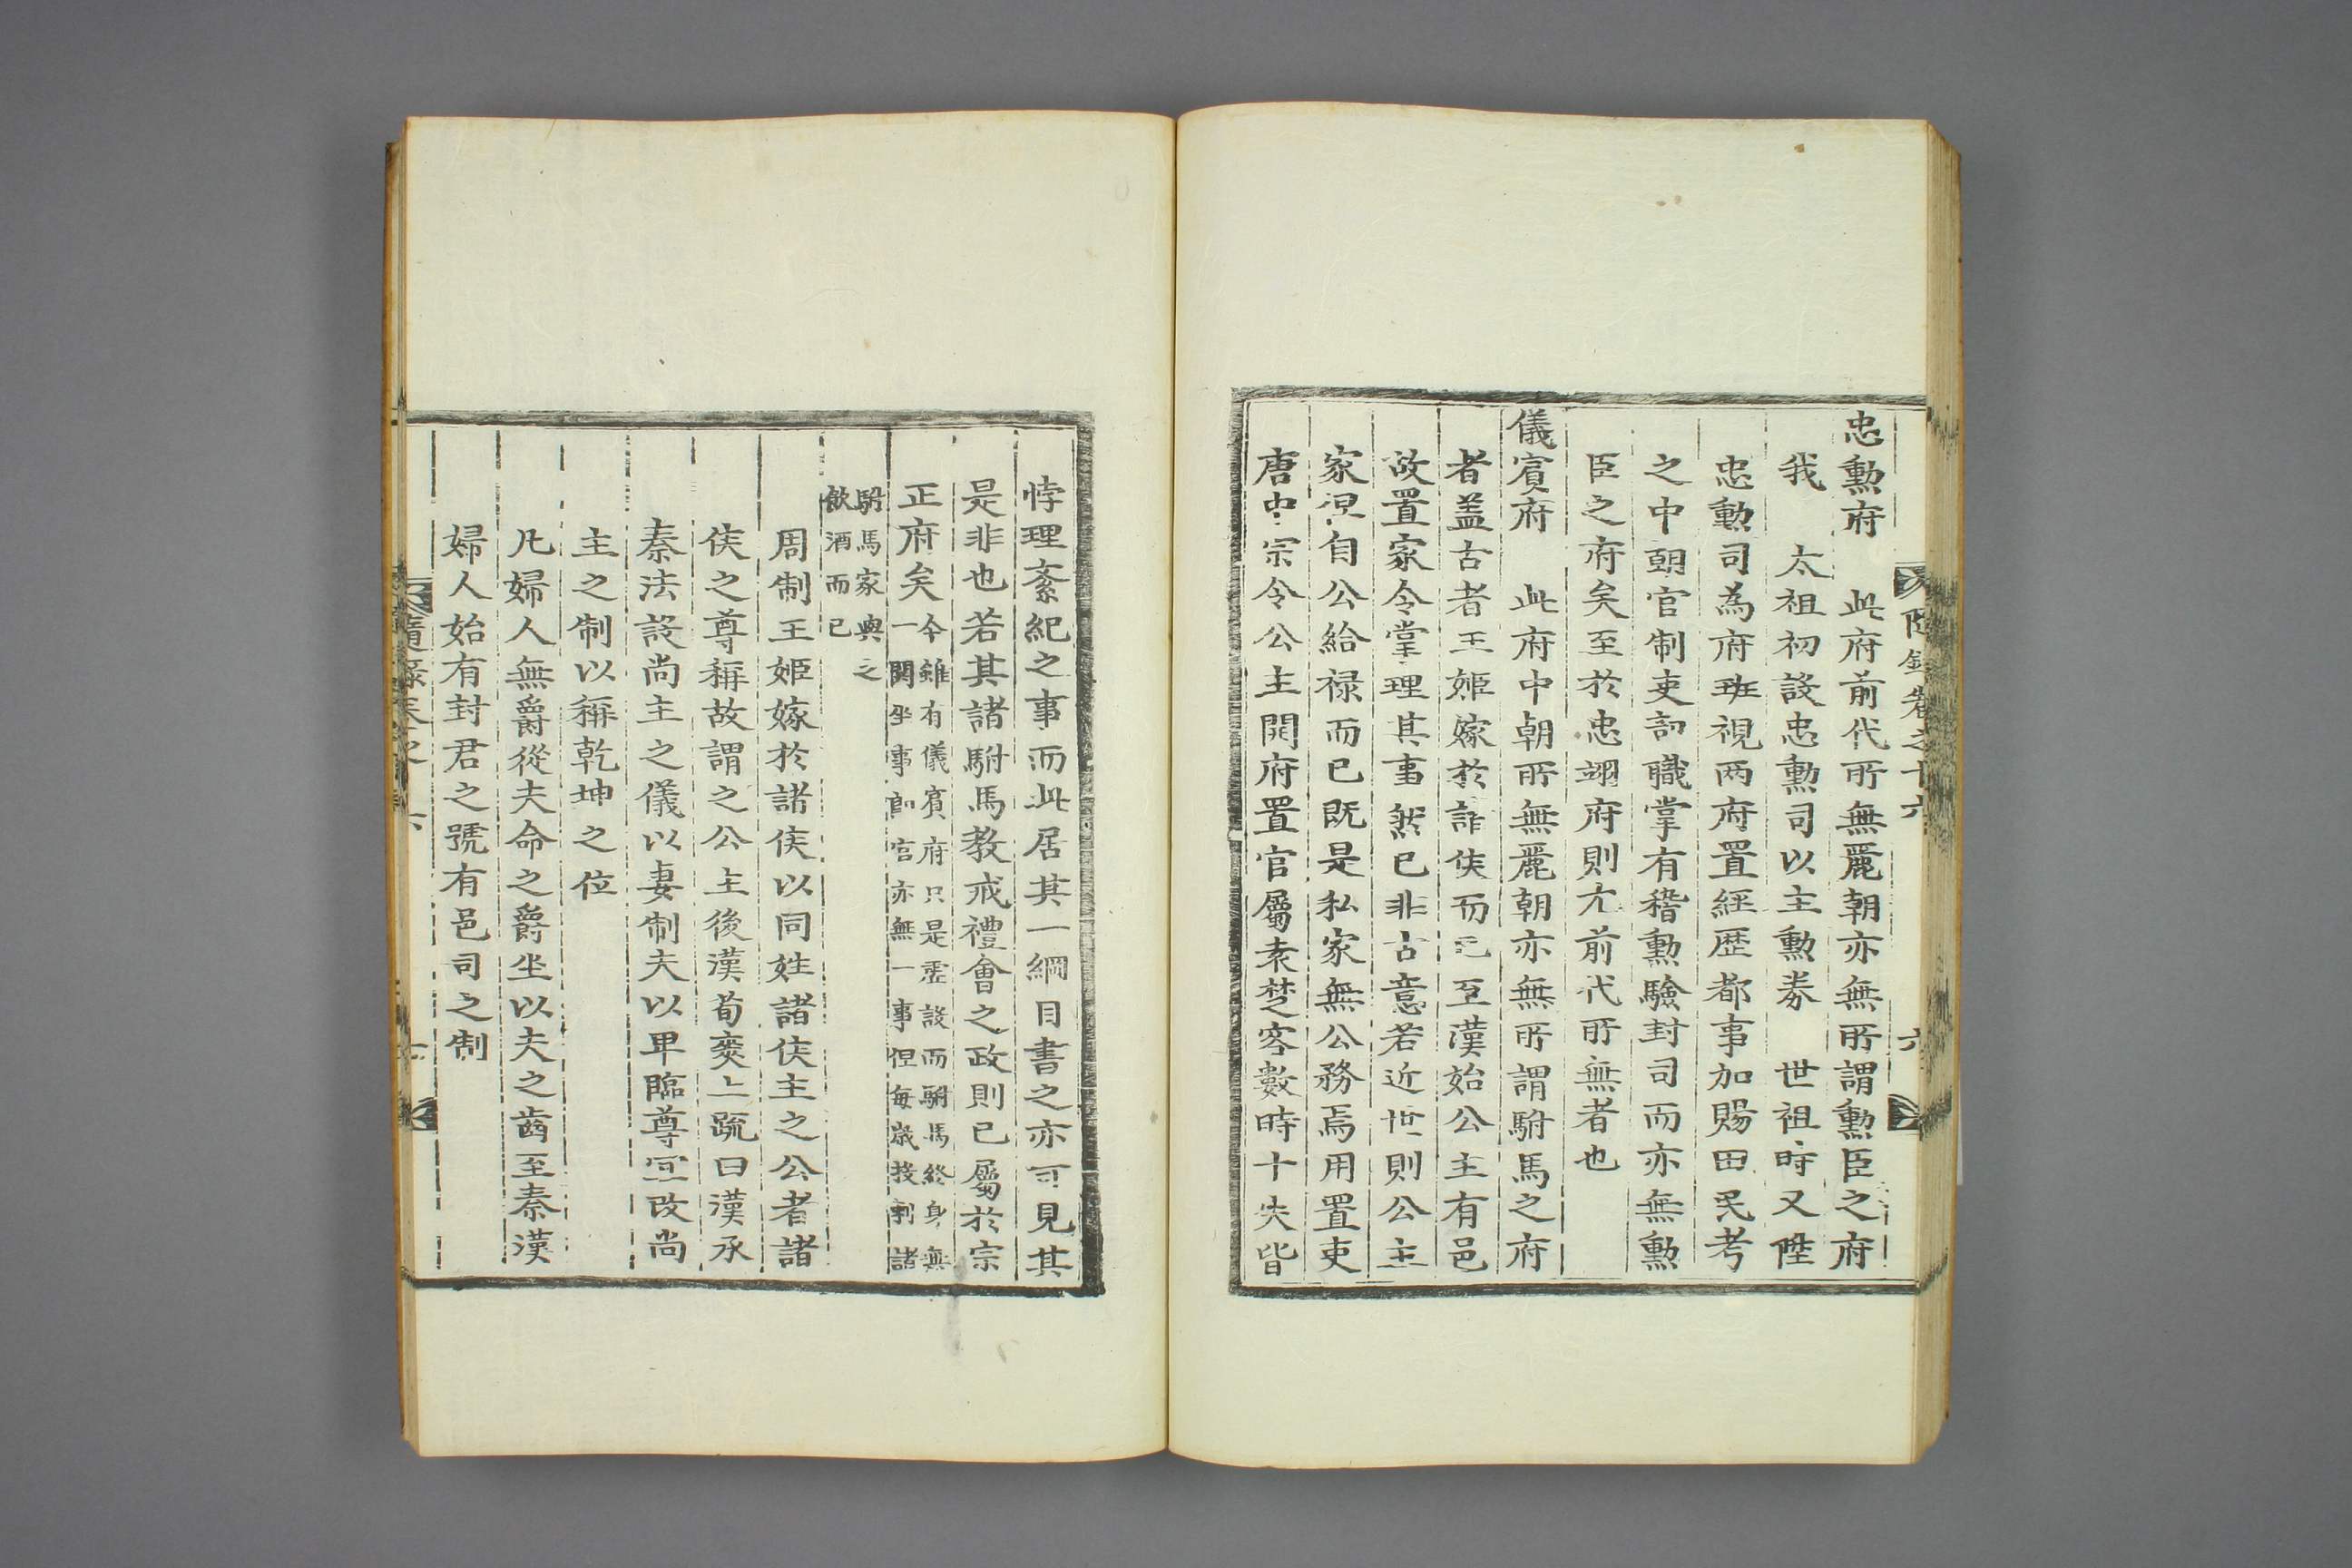 隨錄卷之十六　六
忠勳府　此府前代所無麗朝亦無所謂勳臣之府
我　太祖初設忠勳司以主勳券　世祖時又陞
忠勳司為府班視两府置經歷都事加賜田民考
之中朝官制吏部職掌有稽勳驗封司而亦無勳
臣之府矣至於忠翊府則尤前代所無者也
儀賓府　此府中朝所無麗朝亦無所謂駙馬之府
者盖古者王姬嫁於諸侯而已至漢始公主有邑
故置家令掌理其事然已非古意若近世則公主
家只自公給禄而已既是私家無公務焉用置吏
唐中宗令公主開府置官屬袁楚客數時十失皆
悖理紊紀之事而此居其一綱目書之亦可見其
是非也若其諸駙馬教戒禮會之政則已屬於宗
正府矣
今雖有儀賓府只是虛設而駙馬終身無
一開坐事郎官亦無一事但每歲技剩諸
駙馬家與之
飲酒而已
周制王姬嫁於諸侯以同姓諸侯主之公者諸
侯之尊稱故謂之公主後漢荀爽上疏曰漢承
秦法設尚主之儀以妻制夫以卑臨尊宜改尚
主之制以稱乾坤之位
凡婦人無爵從夫命之爵坐以夫之齒至秦漢
婦人始有封君之號有邑司之制